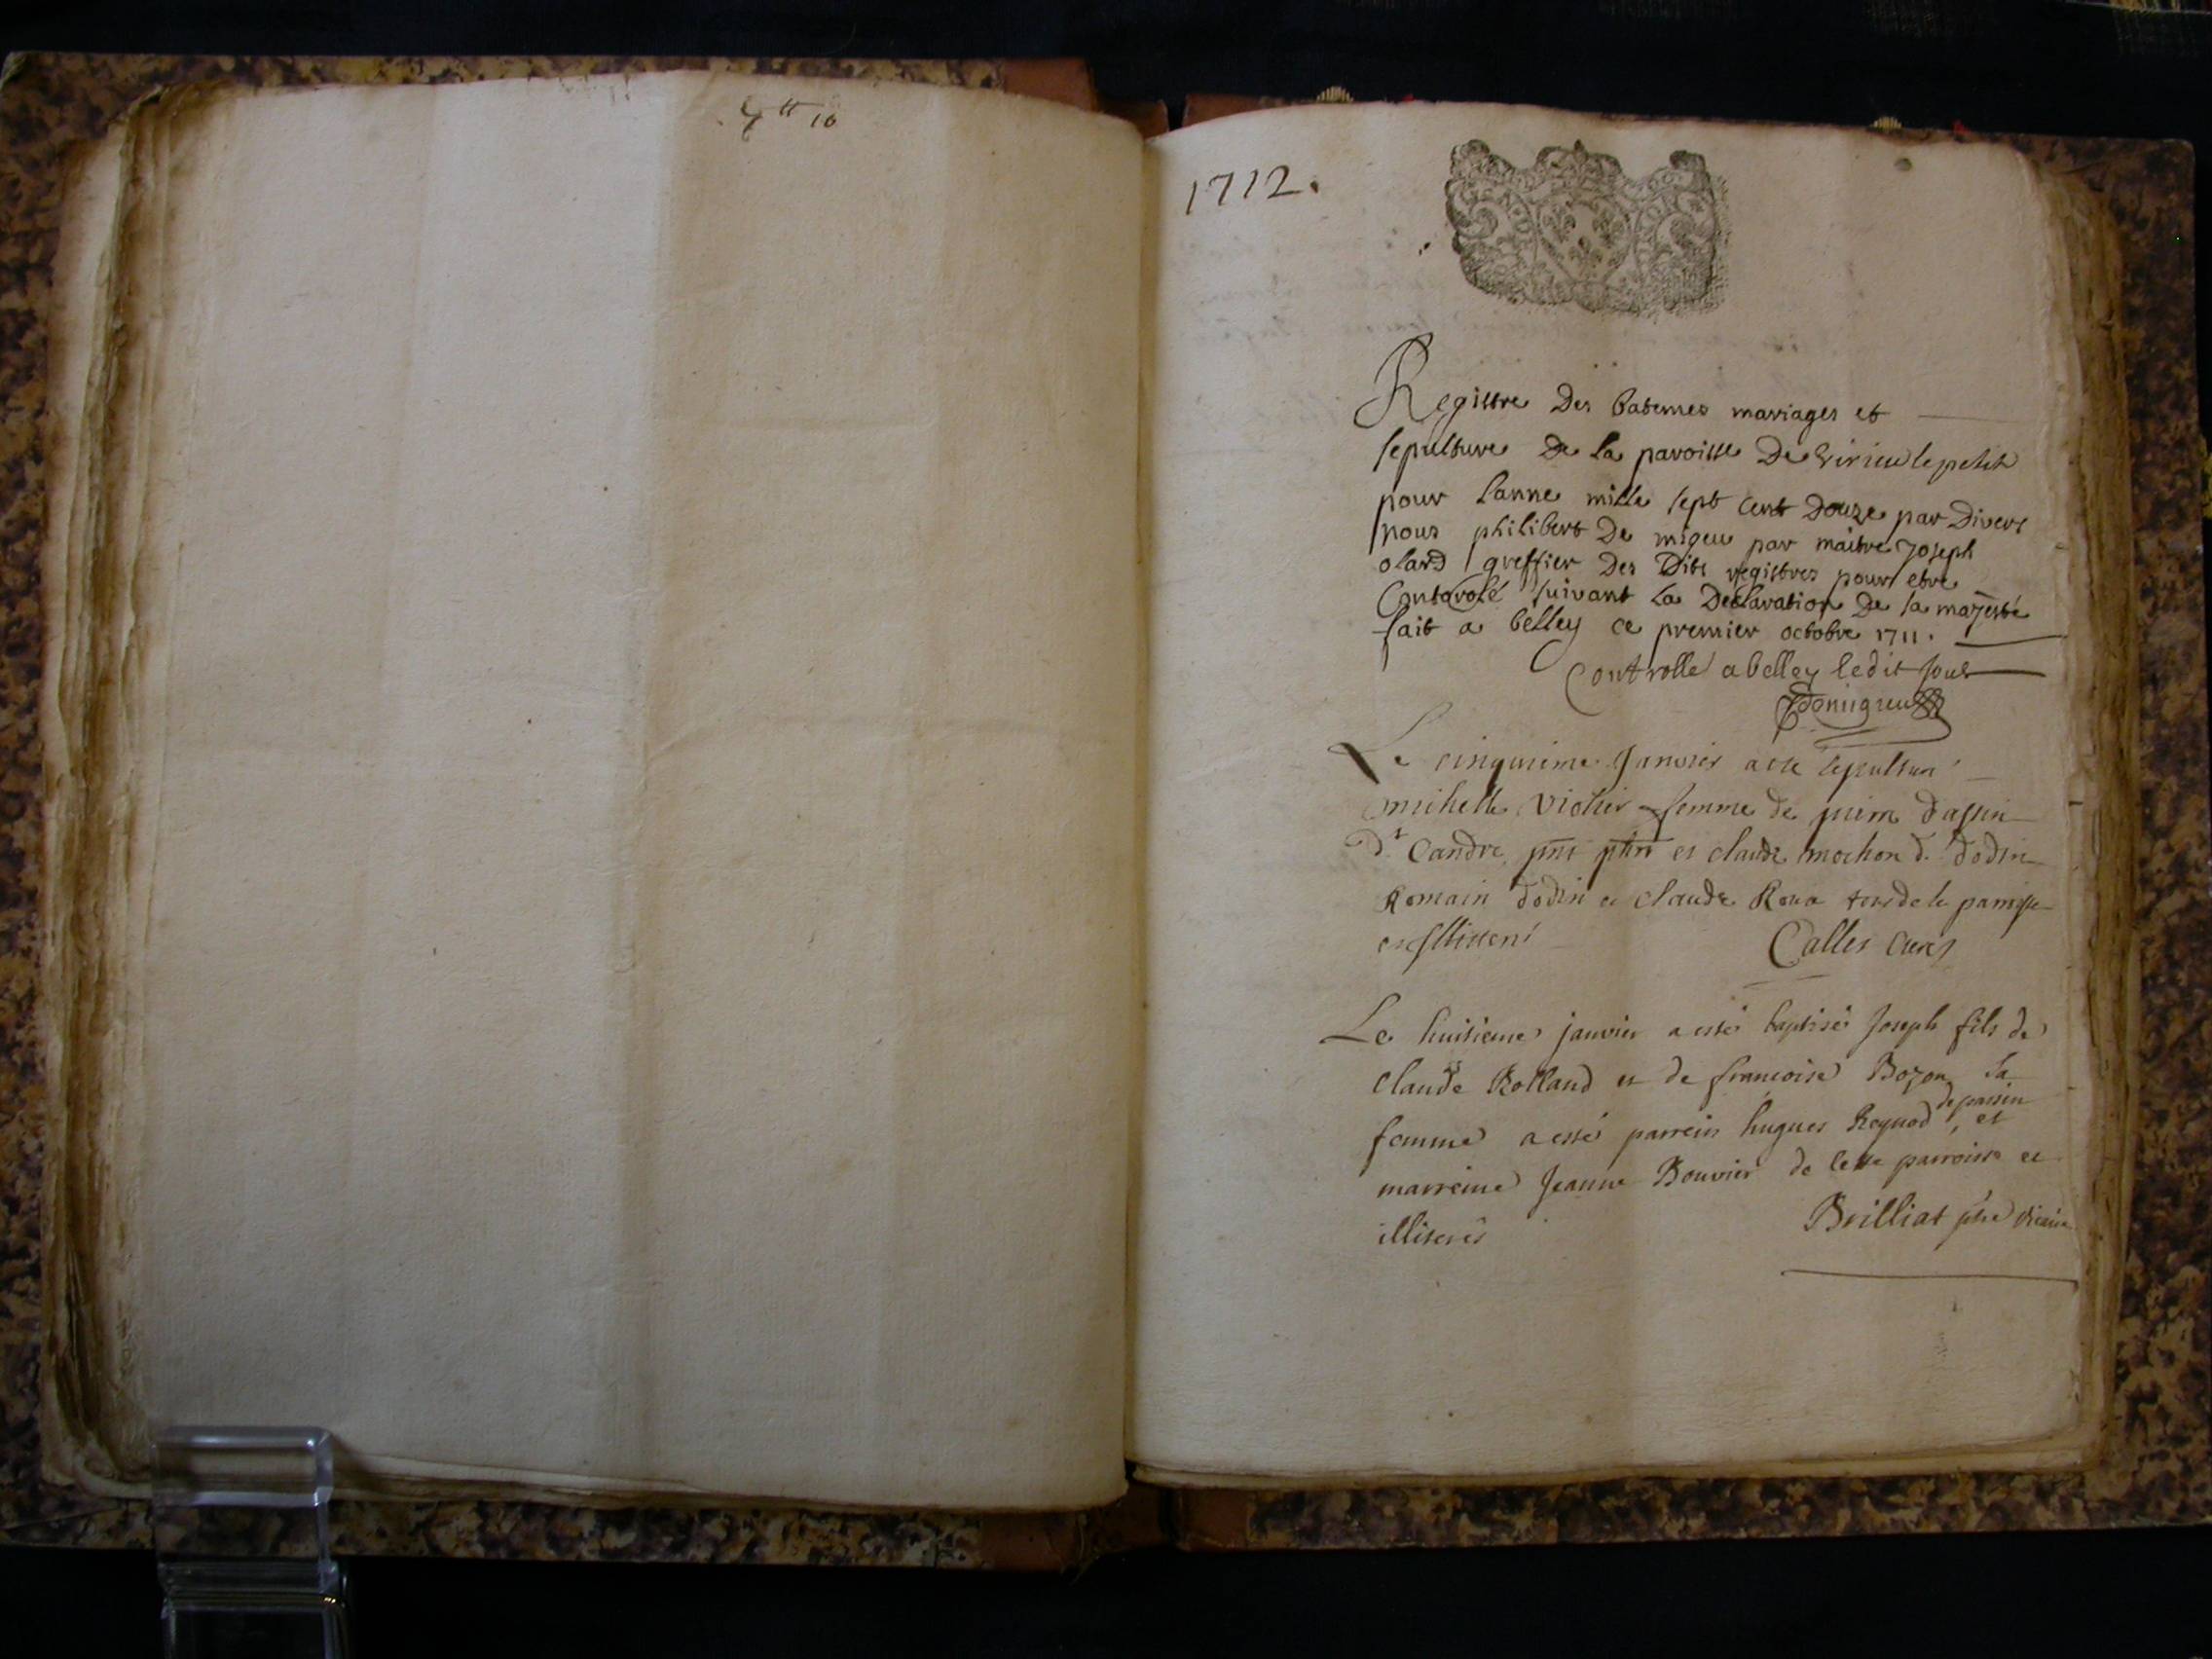 1712.
Registre Des batemes mariages et
sepulture De la paroisse De virieu le petit
pour lanne mille sept cent Douze par Divers
nous philibert De migeu par maitre Joseph
olard greffier Des Dits registres pour etre
Controlé suivant La Declaration De sa majesté
fait a belley ce premier octobre 1711.
Controlle a belley ledit jour
Le cinquieme Janvier a ete sepulturé
michelle violier femme de pierre dassin
et claude mochon d. dodin
Romain dodin et claude Roux de la paroisse
Calles curé
Le huitieme janvier a esté baptisé Joseph fils de
claude Rolland et de francoise Bozon sa
de passin
femme a esté parrein hugues Reynod, et
marreine Jeanne Bouvier de cette parroisse et
illiterés
Brilliat ptre vicaire